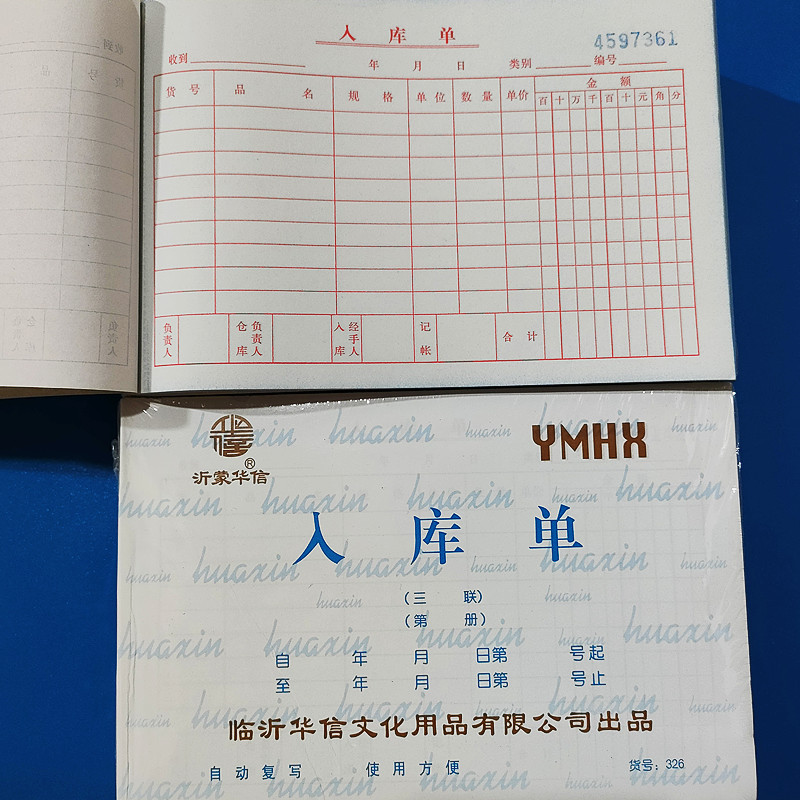 入 库 单
4597361
收到 年 月 日 类别 编号
货 号 品 名 规 格 单 位 数 量 单价 金 额
百 十 万 千 百 十 元 角 分
负责人 仓库 负责人 入库 经手人 记帐 合 计
huaxin huaxin huaxin huaxin huaxin
YMHX
沂蒙华信®
huaxin huaxin huaxin huaxin huaxin
入 库 单
huaxin huaxin huaxin huaxin huaxin
huaxin huaxin
(三 联)
(第 册)
huaxin huaxin huaxin huaxin huaxin
自 年 月 日第 号起
至 年 月 日第 号止
huaxin huaxin huaxin huaxin huaxin
临沂华信文化用品有限公司出品
自动复写 使用方便 货号:326
huaxin huaxin huaxin huaxin huaxin